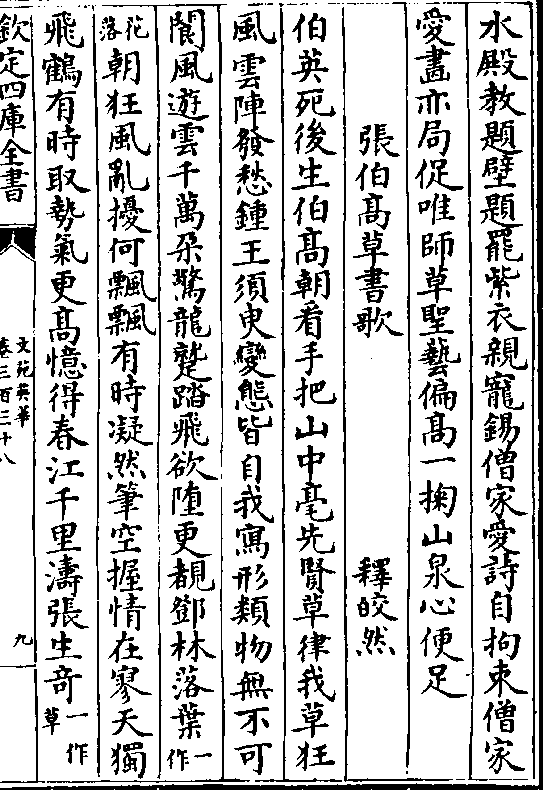 水殿教題壁題罷紫衣親寵錫僧家愛詩自拘束僧家
愛畫亦局促唯師草聖藝偏高一掬山泉心便足
張伯高草書歌 釋皎然
伯英死後生伯高朝看手把山中毫先賢草律我草狂
風雲陣發愁鍾王須臾變態皆自我寫形類物無不可
閬風遊雲千萬朵驚龍蹵踏飛欲墮更覩鄧林落葉一作
落花朝狂風亂擾何飄飄有時凝然筆空握情在寥天獨
飛鶴有時取勢氣更高憶得春江千里濤張生奇一作草
欽定四庫全書
文苑英華
卷三百三十八
九